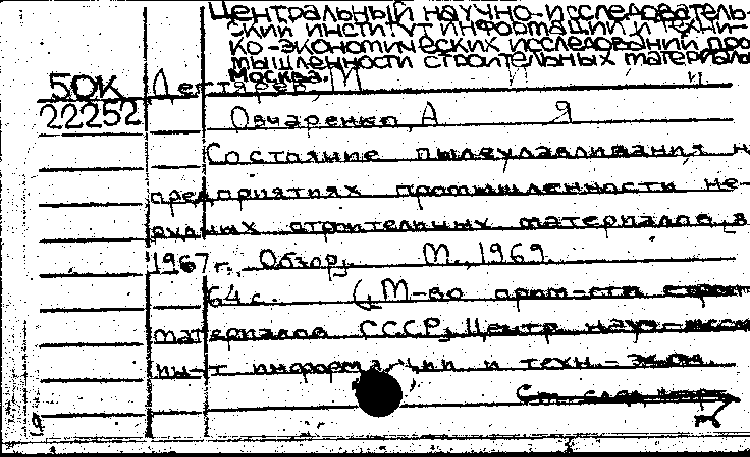 Центральный научно-исследователь-
ский институт информации и техни-
ко-экономических исследований про
мышленности строительных материало
Москва.
50К
22252
Овчаренко, А Я
Состояние пылеулавливания н
предприятиях промышленности не-
рудных строительных материалов в
1967 г. Обзор. М., 1969.
64 с. (М-во пром-сти строит
материалов СССР, Центр. науч.-иссл
ин-т информации и техн.-экон.
См. след. карт.